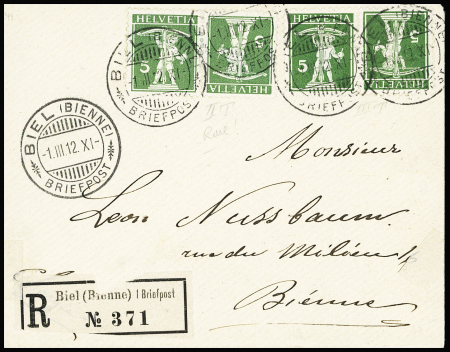 HELVETIA HELVETIA HELVETIA HELVETIA
5 5 5 5
BIEL (BIENNE)
-1.III.12.XI-
BRIEFPOST
BIEL (BIENNE)
-1.III.12.XI-
BRIEFPOST
Rare!
Monsieur
Leon Nussbaum
rue du Milieu
Bienne
R Biel (Bienne) 1 Briefpost
№ 371